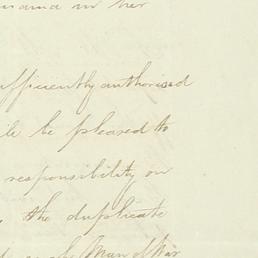 in her
sufficiently authorised
be pleased to
responsibility on
the duplicate
Man of War